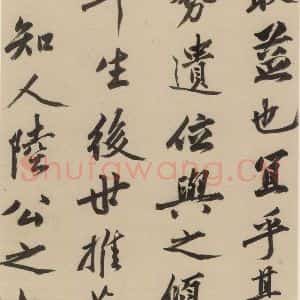 也宜乎其
遺位與之傾
生後世推
知人陸公之
Shufawang.cn